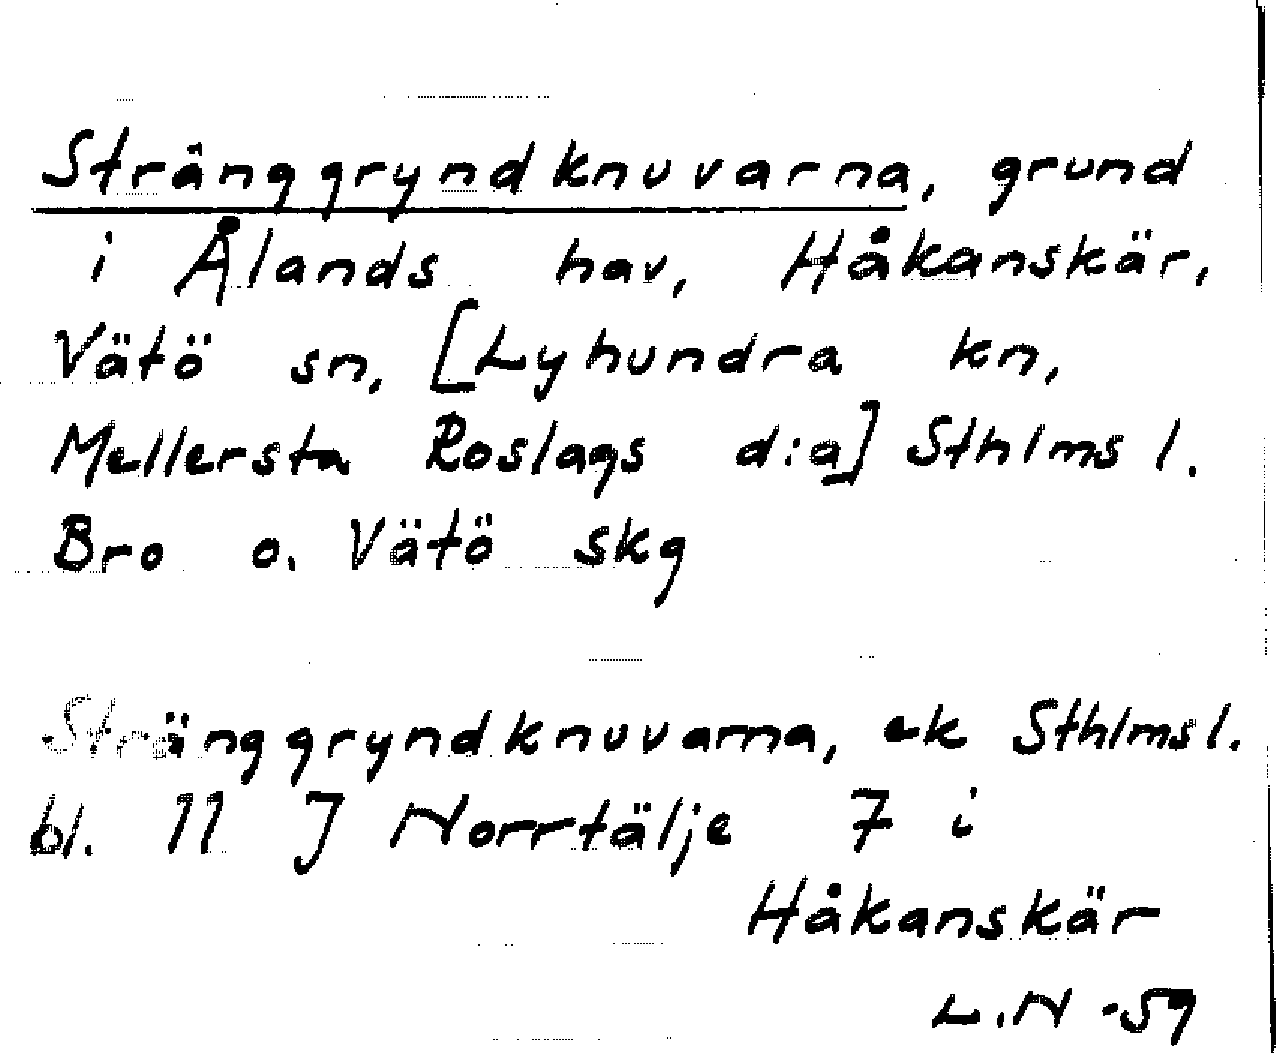 Stränggryndknuvarna, grund
i Ålands hav, Håkanskär,
Vätö sn, [Lyhundra kn,
Mellersta Roslags d:a] Sthlms l.
Bro o. Vätö skg
Stränggryndknuvarna, ek Sthlms l.
bl. 11 J Norrtälje 7 i
Håkanskär
L.N -59